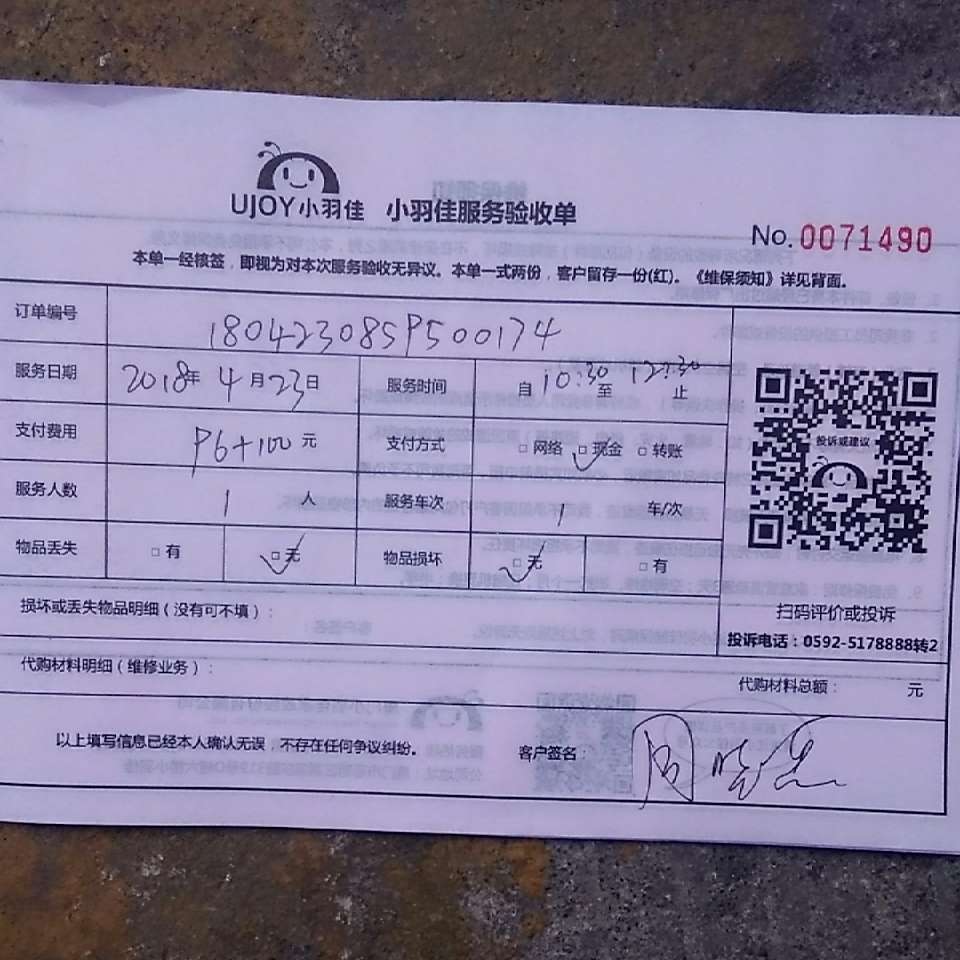 UJOY小羽佳 小羽佳服务验收单
No.0071490
本单一经核签，即视为对本次服务验收无异议。本单一式两份，客户留存一份(红)。《维保须知》详见背面。
订单编号 18042308SP500174
服务日期 2018年4月23日 服务时间 自10:30至12:30止
支付费用 P6+100元 支付方式 □网络 □现金 □转账
服务人数 1人 服务车次 1车/次
物品丢失 □有 □无 物品损坏 □无 □有
投诉或建议
扫码评价或投诉
投诉电话：0592-5178888转2
损坏或丢失物品明细（没有可不填）：
代购材料明细（维修业务）： 代购材料总额： 元
以上填写信息已经本人确认无误，不存在任何争议纠纷。 客户签名：